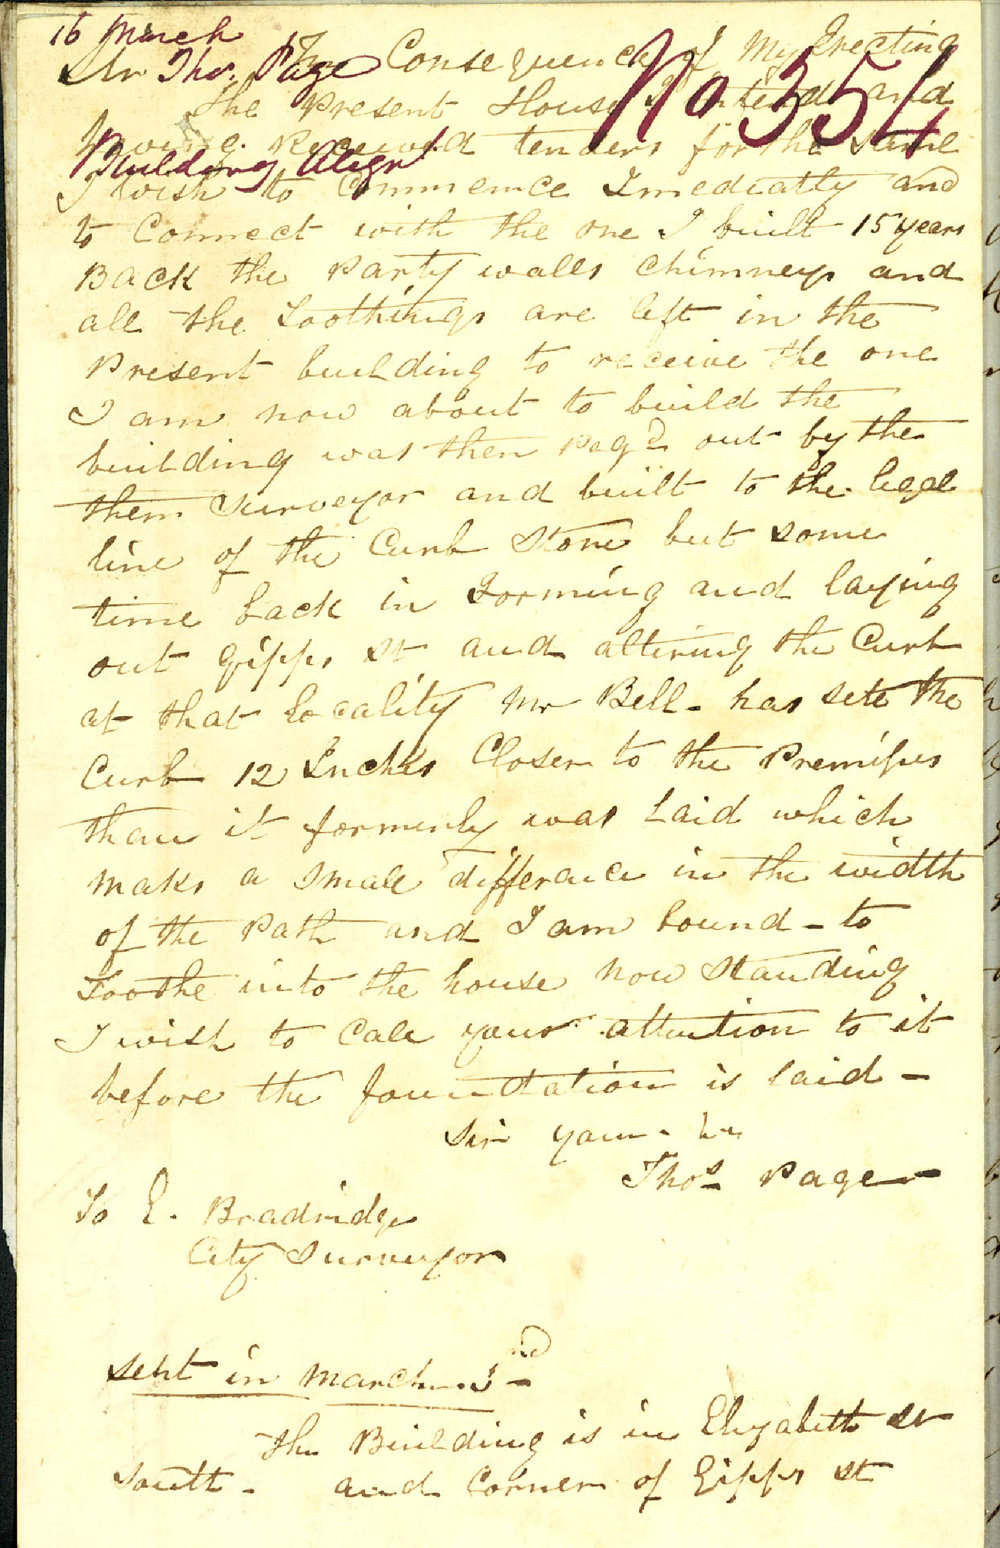 16 March
Sir In Consequence of My Erecting
Thos. Page
No 354
the Present House I intend and
have Received tenders for the Same
Building Alignt
I wish to Commence Imediatly and
to Connect with the one I built 15 years
Back the Party walls Chimneys and
all the Toothings are left in the
Present building to receive the one
I am now about to build the
building was then Pegd out by the
them Surveyor and built to the legal
line of the Curb Stone but some
time back in Forming and laying
out Gipps St and altering the Curb
at that locality Mr Bell has sett the
Curb 12 Inches Closer to the Premises
than it formerly was Laid which
maks a Small differance in the width
of the Path and I am bound - to
Toothe into the house now Standing
I wish to Call your attention to it
before the foundation is laid -
Sir yours
Thos Page
To E. Bradridge
City Surveyor
Sent in March 3rd
the Building is in Elizabeth St
South - and Corner of Gipps St